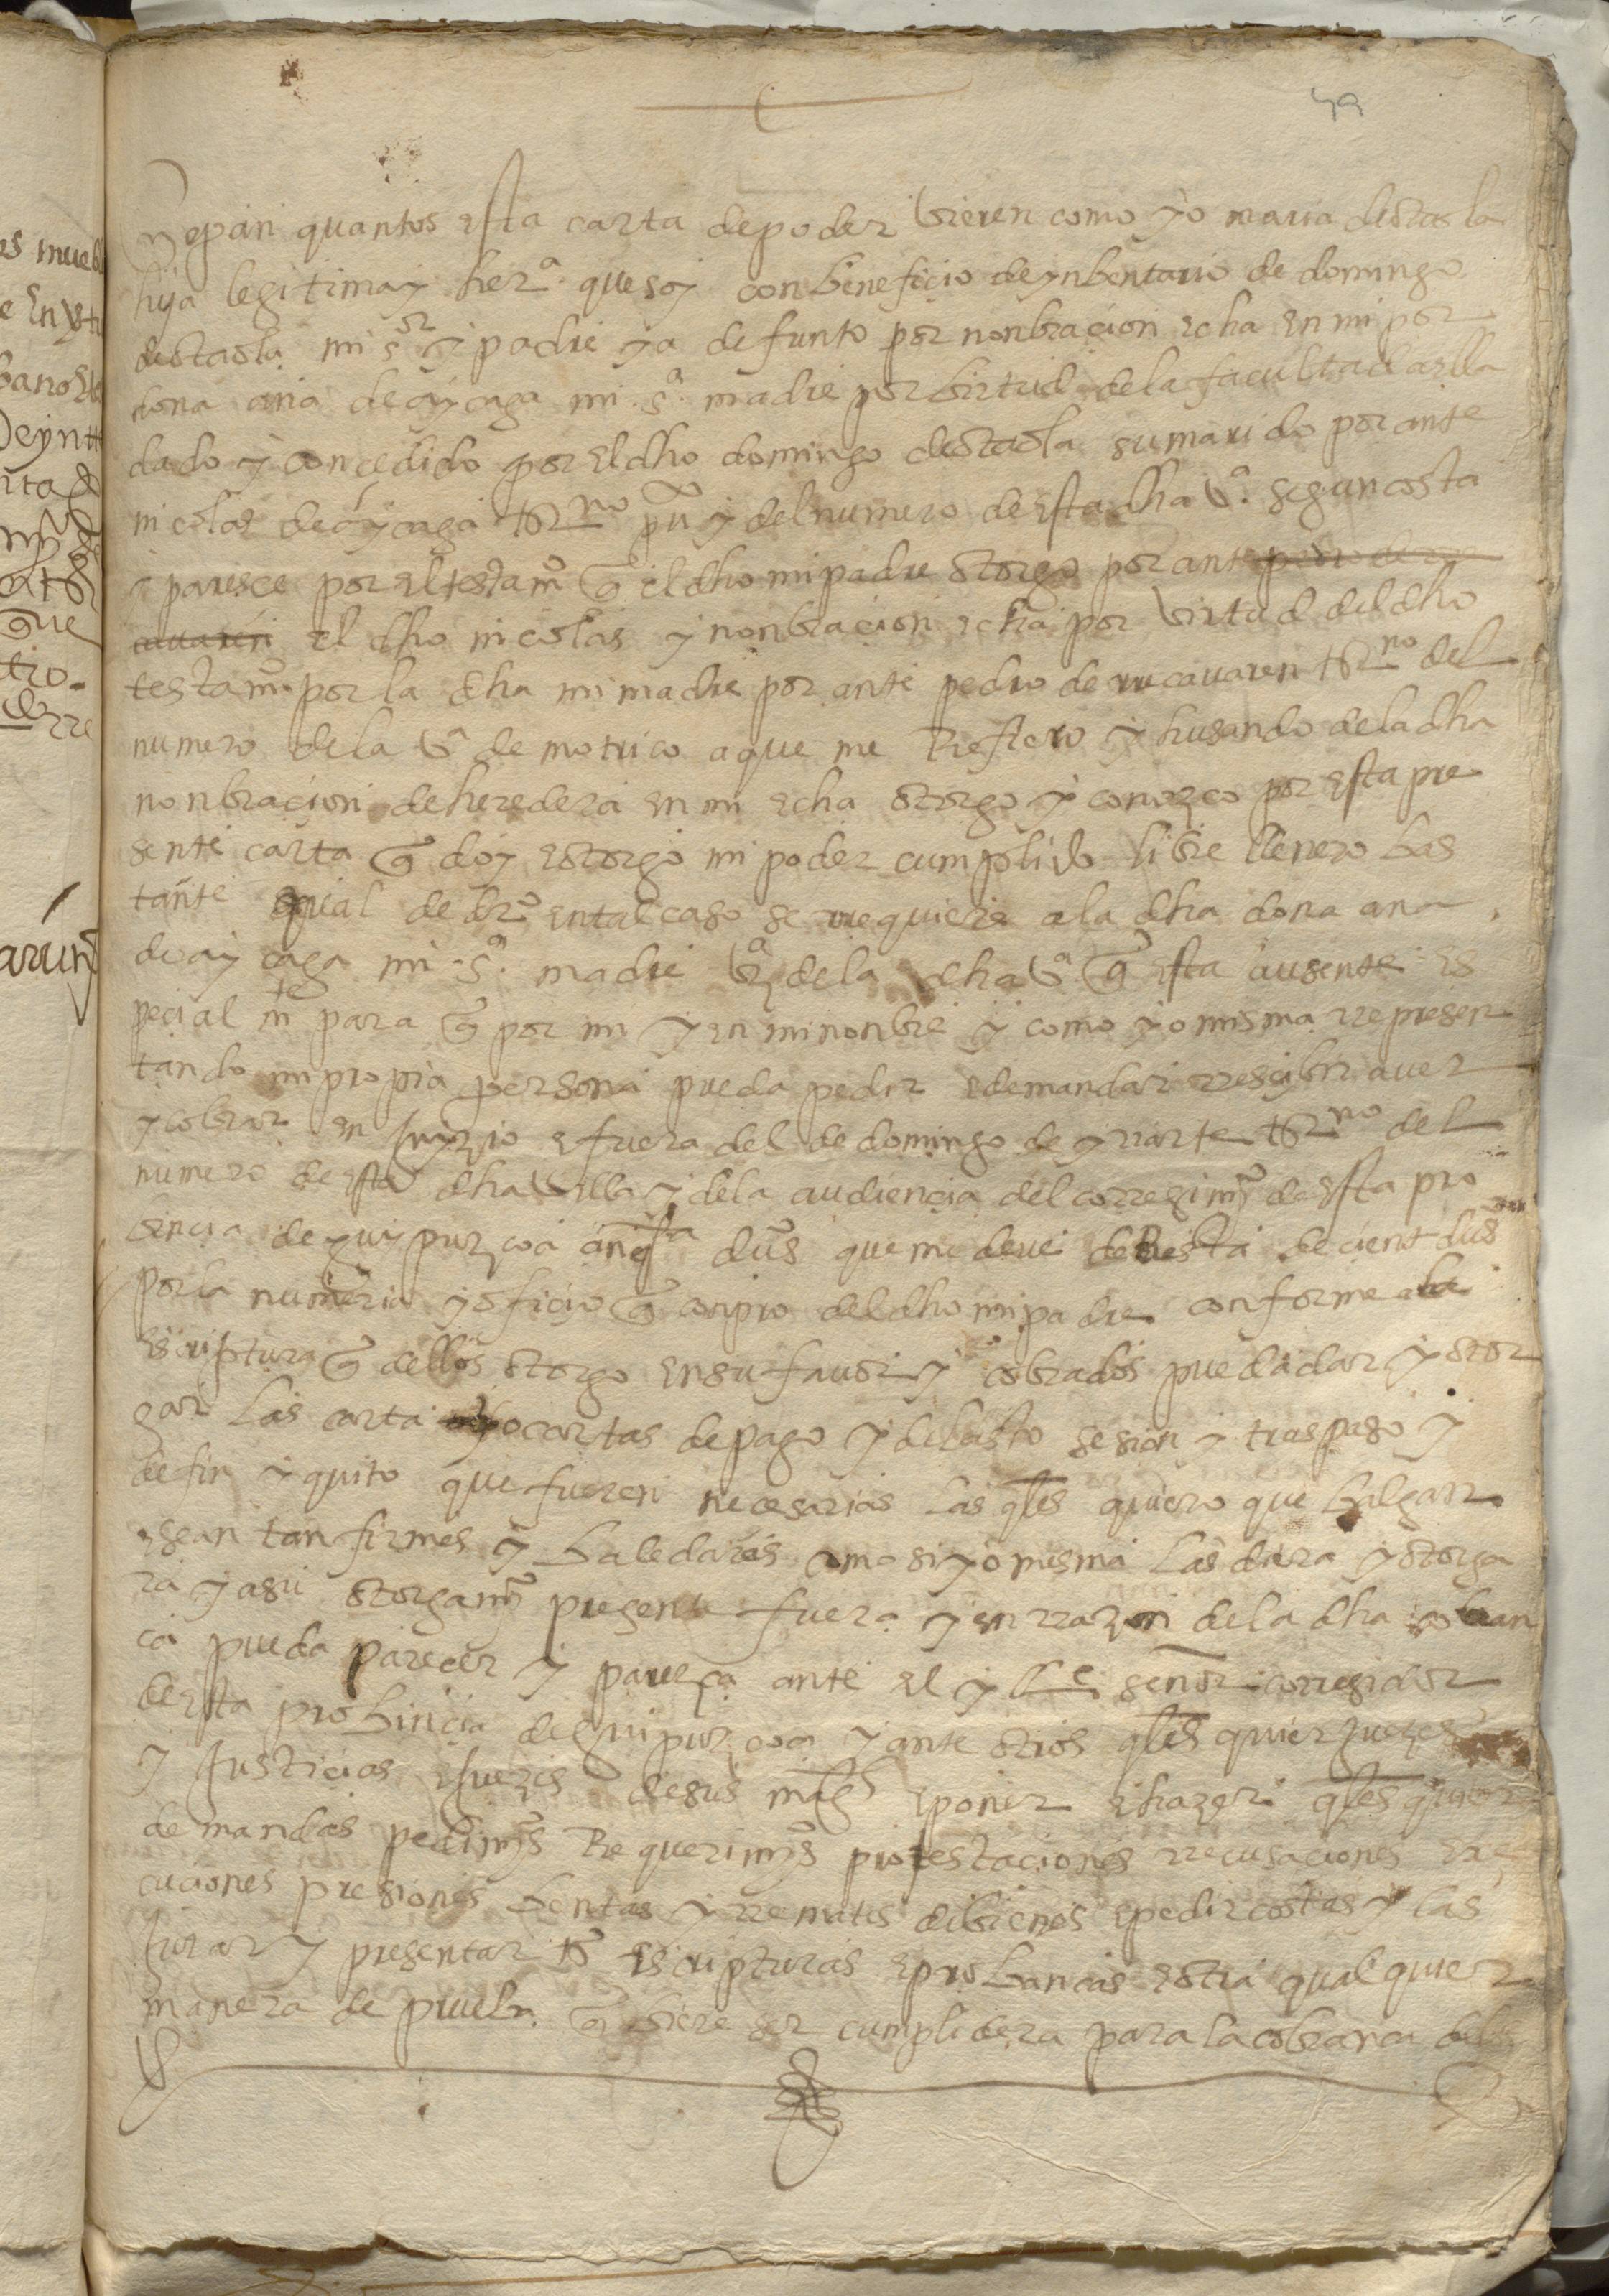 79
Sepan quantos esta carta de poder vieren como yo maria de ostaola
hija legitima y herª que soy con beneficio de ynbentario de domingo
de ostaola mi sor y padre ya defunto por nonbracion echa en mi por
dona ana de ayçaga mi sª madre por birtud de la facultad a ella
dado y concedido por el dho domingo de ostaola su marido por ante
nicolas de ayçaga esno pu y del numero de esta dha vª segun costa
y paresce por el testamo q el dho mi padre otorgo por ante pedro de
el dho nicolas y nonbracion echa por virtud del dho
testamo por la dha mi madre por ante pedro de yrucavaren esno del
numero de la vª de motrico a que me Refiero y husando de la dha
nonbraçion de heredera en mi echa otorgo y conozco por esta pre
sente carta q doy e otorgo mi poder cumplido libre llenero bas
tante qual de dro en tal caso se rrequiere a la dha dona ana
de ayçaga mi sª madre vzª de la dha vª q esta ausente es
pecial mte para q por mi y en mi nonbre y como yo misma rrepresen
tando mi propia persona pueda pedir e demandar rrescibir aver
y cobrar en juyzio e fuera del de domingo de yriarte esno del
numero de esta dha villa y de la audiencia del corregimo de esta pro
bincia de guypuzcoa cinqta dus que me deve de Resta de cient dus
por la numeria y oficio q conpro del dho mi padre conforme a la
escriptura q dellos otorgo en su favor y cobrados pueda dar y otor
gar las carta o cartas de pago y de lasto sesion y traspaso y
de fin y quito que fueren necesarias las qles quiero que balgan
e sean tan firmes y baledares como si yo misma las diera y otorga
ra y a su otorgamo presente fuera y en rrazon de la dha cobran
ça pueda parecer y parezca ante el yllе señor corregidor
de esta probincia de guipuzcoa y ante otros qles quier juezes
y Justicias e juezes de sus mags e poner e hazer qles quier
demandas pedimos Requerimos protestaciones rrecusaciones exe
cuciones presiones bentas y rremates de bienes e pedir costas y las
jurar y presentar ts escripturas e probancas e otra qualquier
manera de prueba q biere ser cumplidera para la cobranca de los